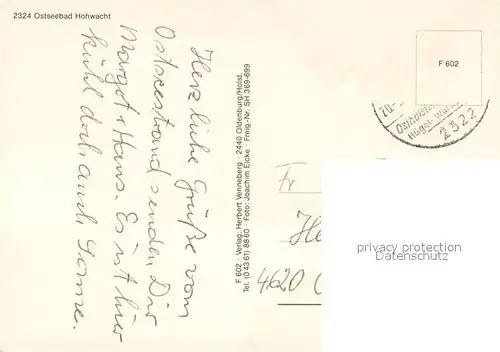 2324 Ostseebad Hohwacht
Herzliche Grüße vom
Ostseestrand senden Dir
Margot + Hans. Es ist hier
kühl doch auch Sonne.
F 602 · Verlag: Herbert Venneberg · 2440 Oldenburg/Holst.
Tel. (0 43 61) 88 60 · Foto: Joachim Eicke · Freig.-Nr. SH 369-699
F 602
2322
Fr
He
4620
privacy protection
AnsichtskartenVersand.com